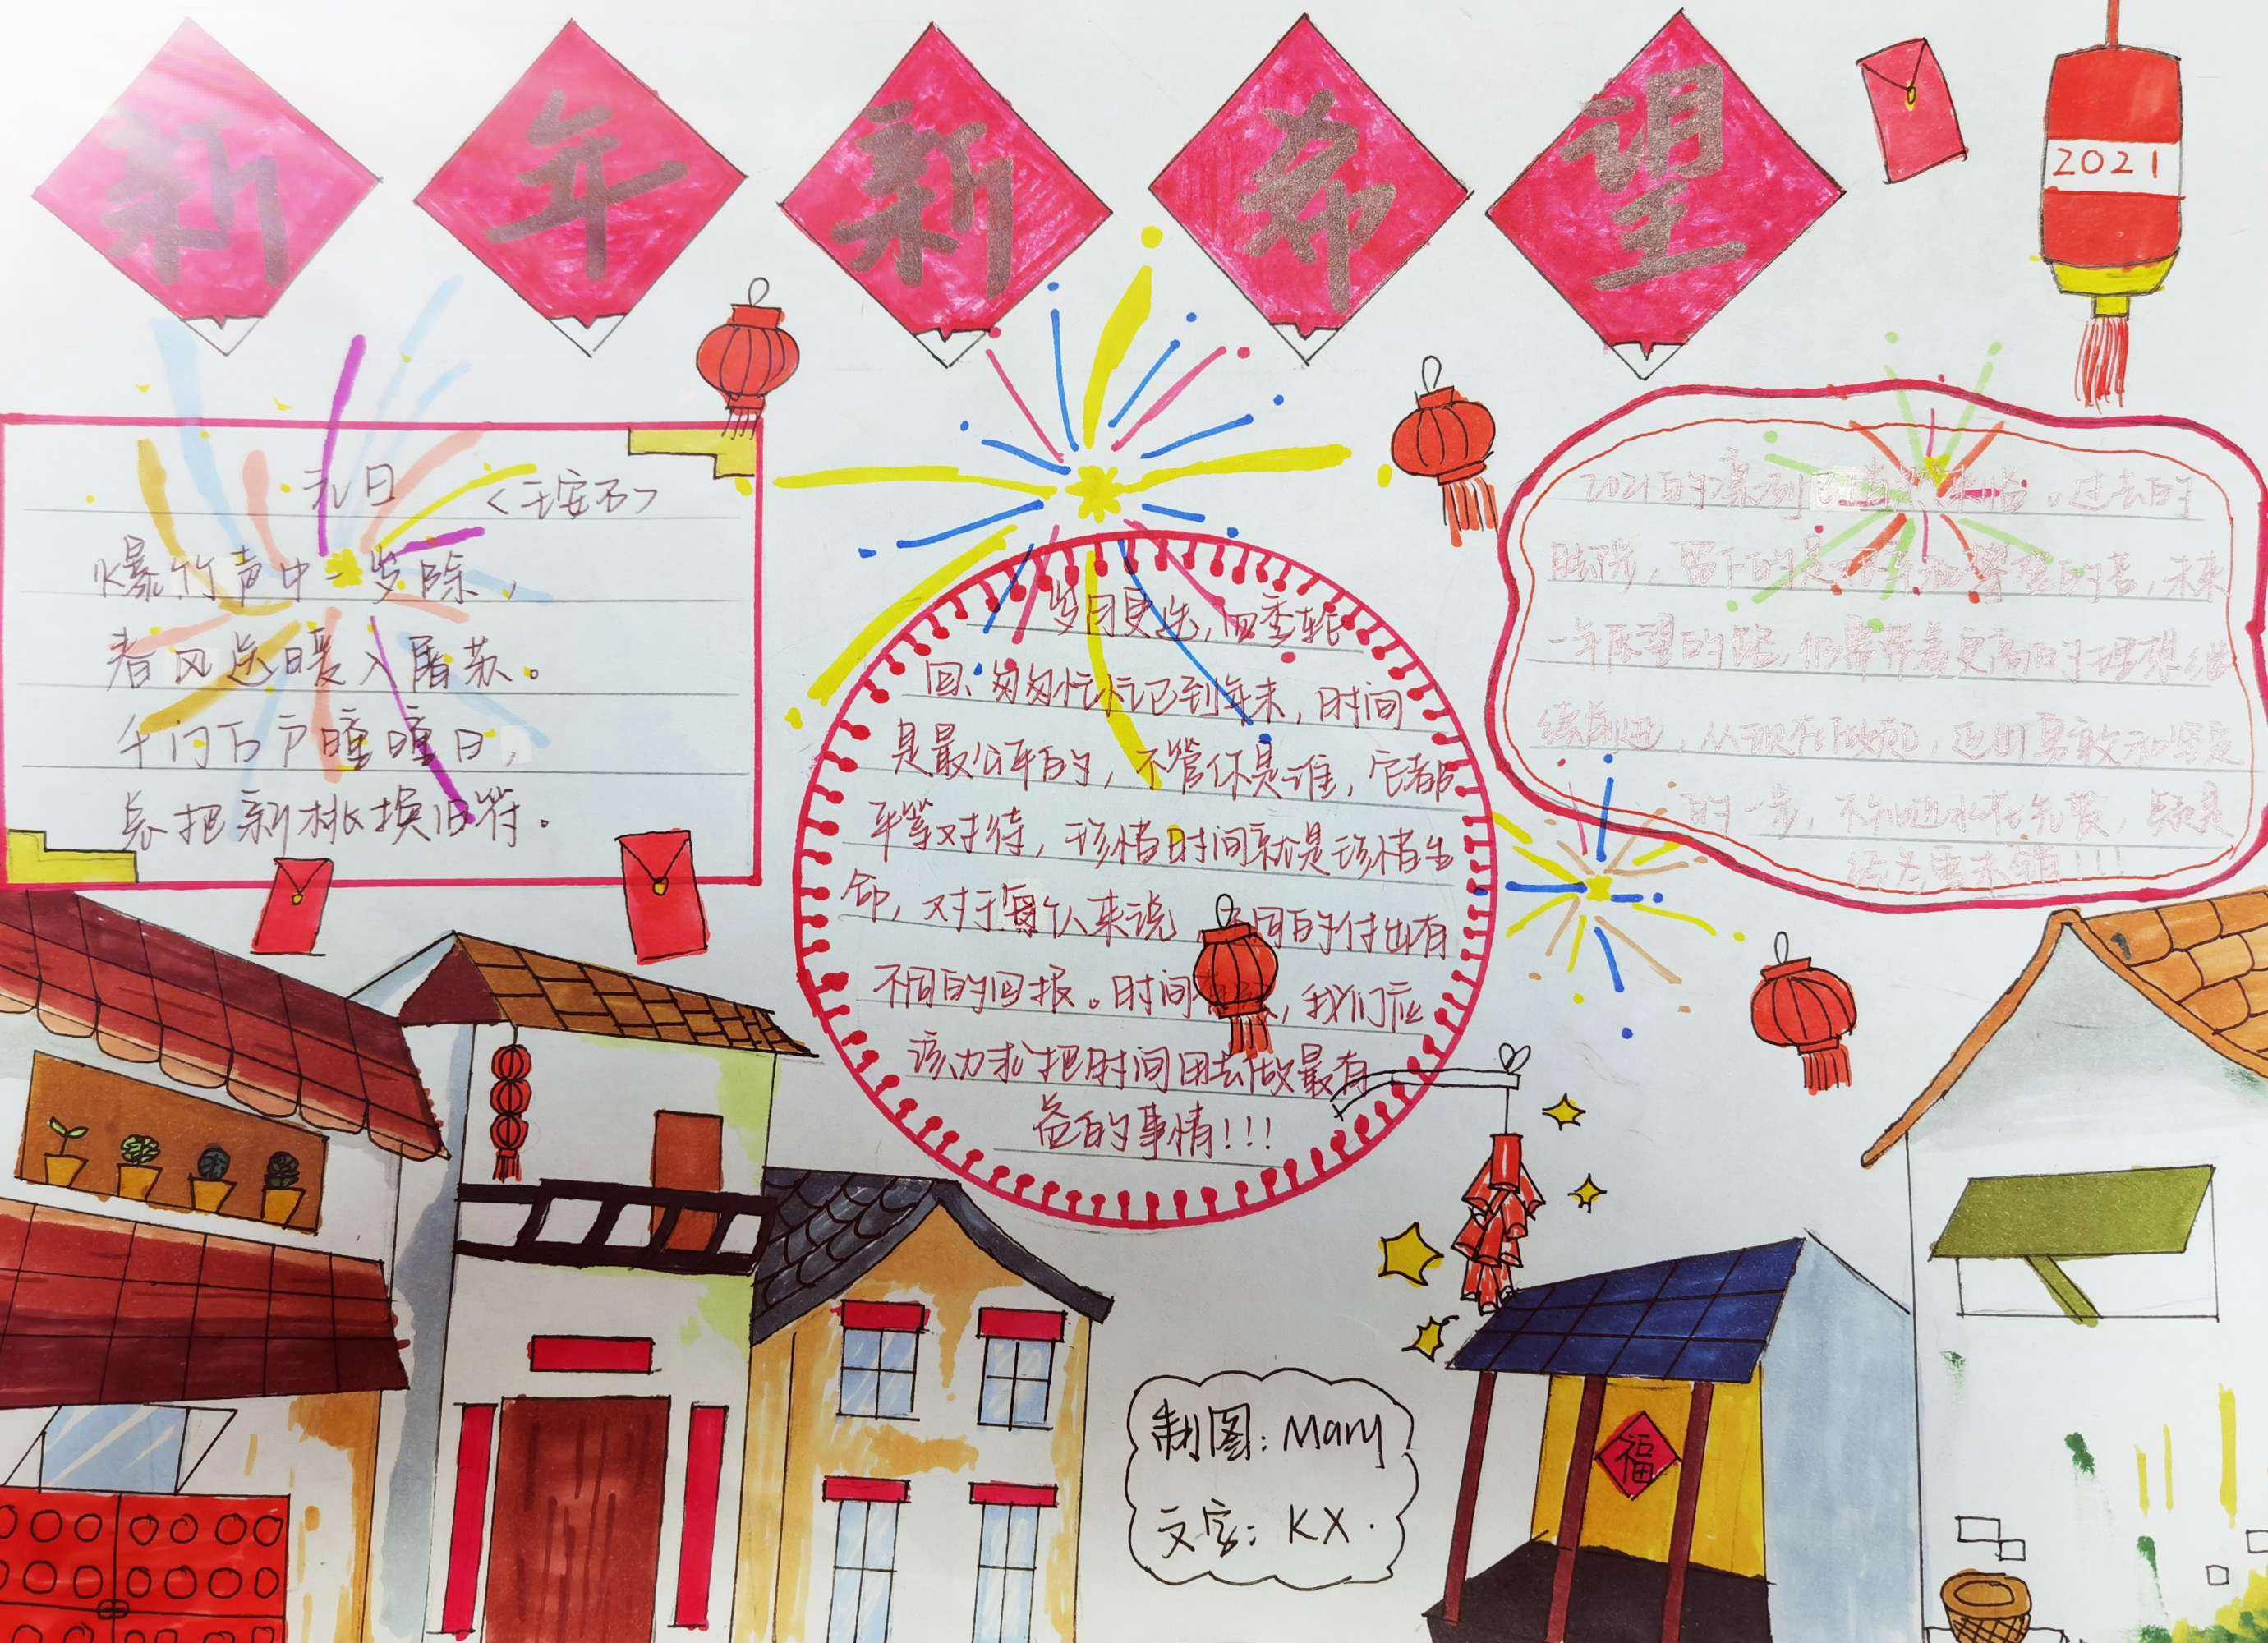 新年新希望
2021
元日 <王安石>
爆竹声中一岁除，
春风送暖入屠苏。
千门万户曈曈日，
总把新桃换旧符。
岁月更迭，四季轮
回、匆匆忙忙已到年末，时间
是最公平的，不管你是谁，它都
平等对待，珍惜时间就是珍惜生
命，对于每个人来说 同的付出有
不同的回报。时间 ，我们应
该力求把时间用去做最有
益的事情！！！
2021的 。过去的
，留下的是 ，未来
一年展望的路，仍需带着更高的理想继
续前进，从现在做起，迈出勇敢和坚定
的一步，不
！！！
福
制图：Mary
文字：KX.